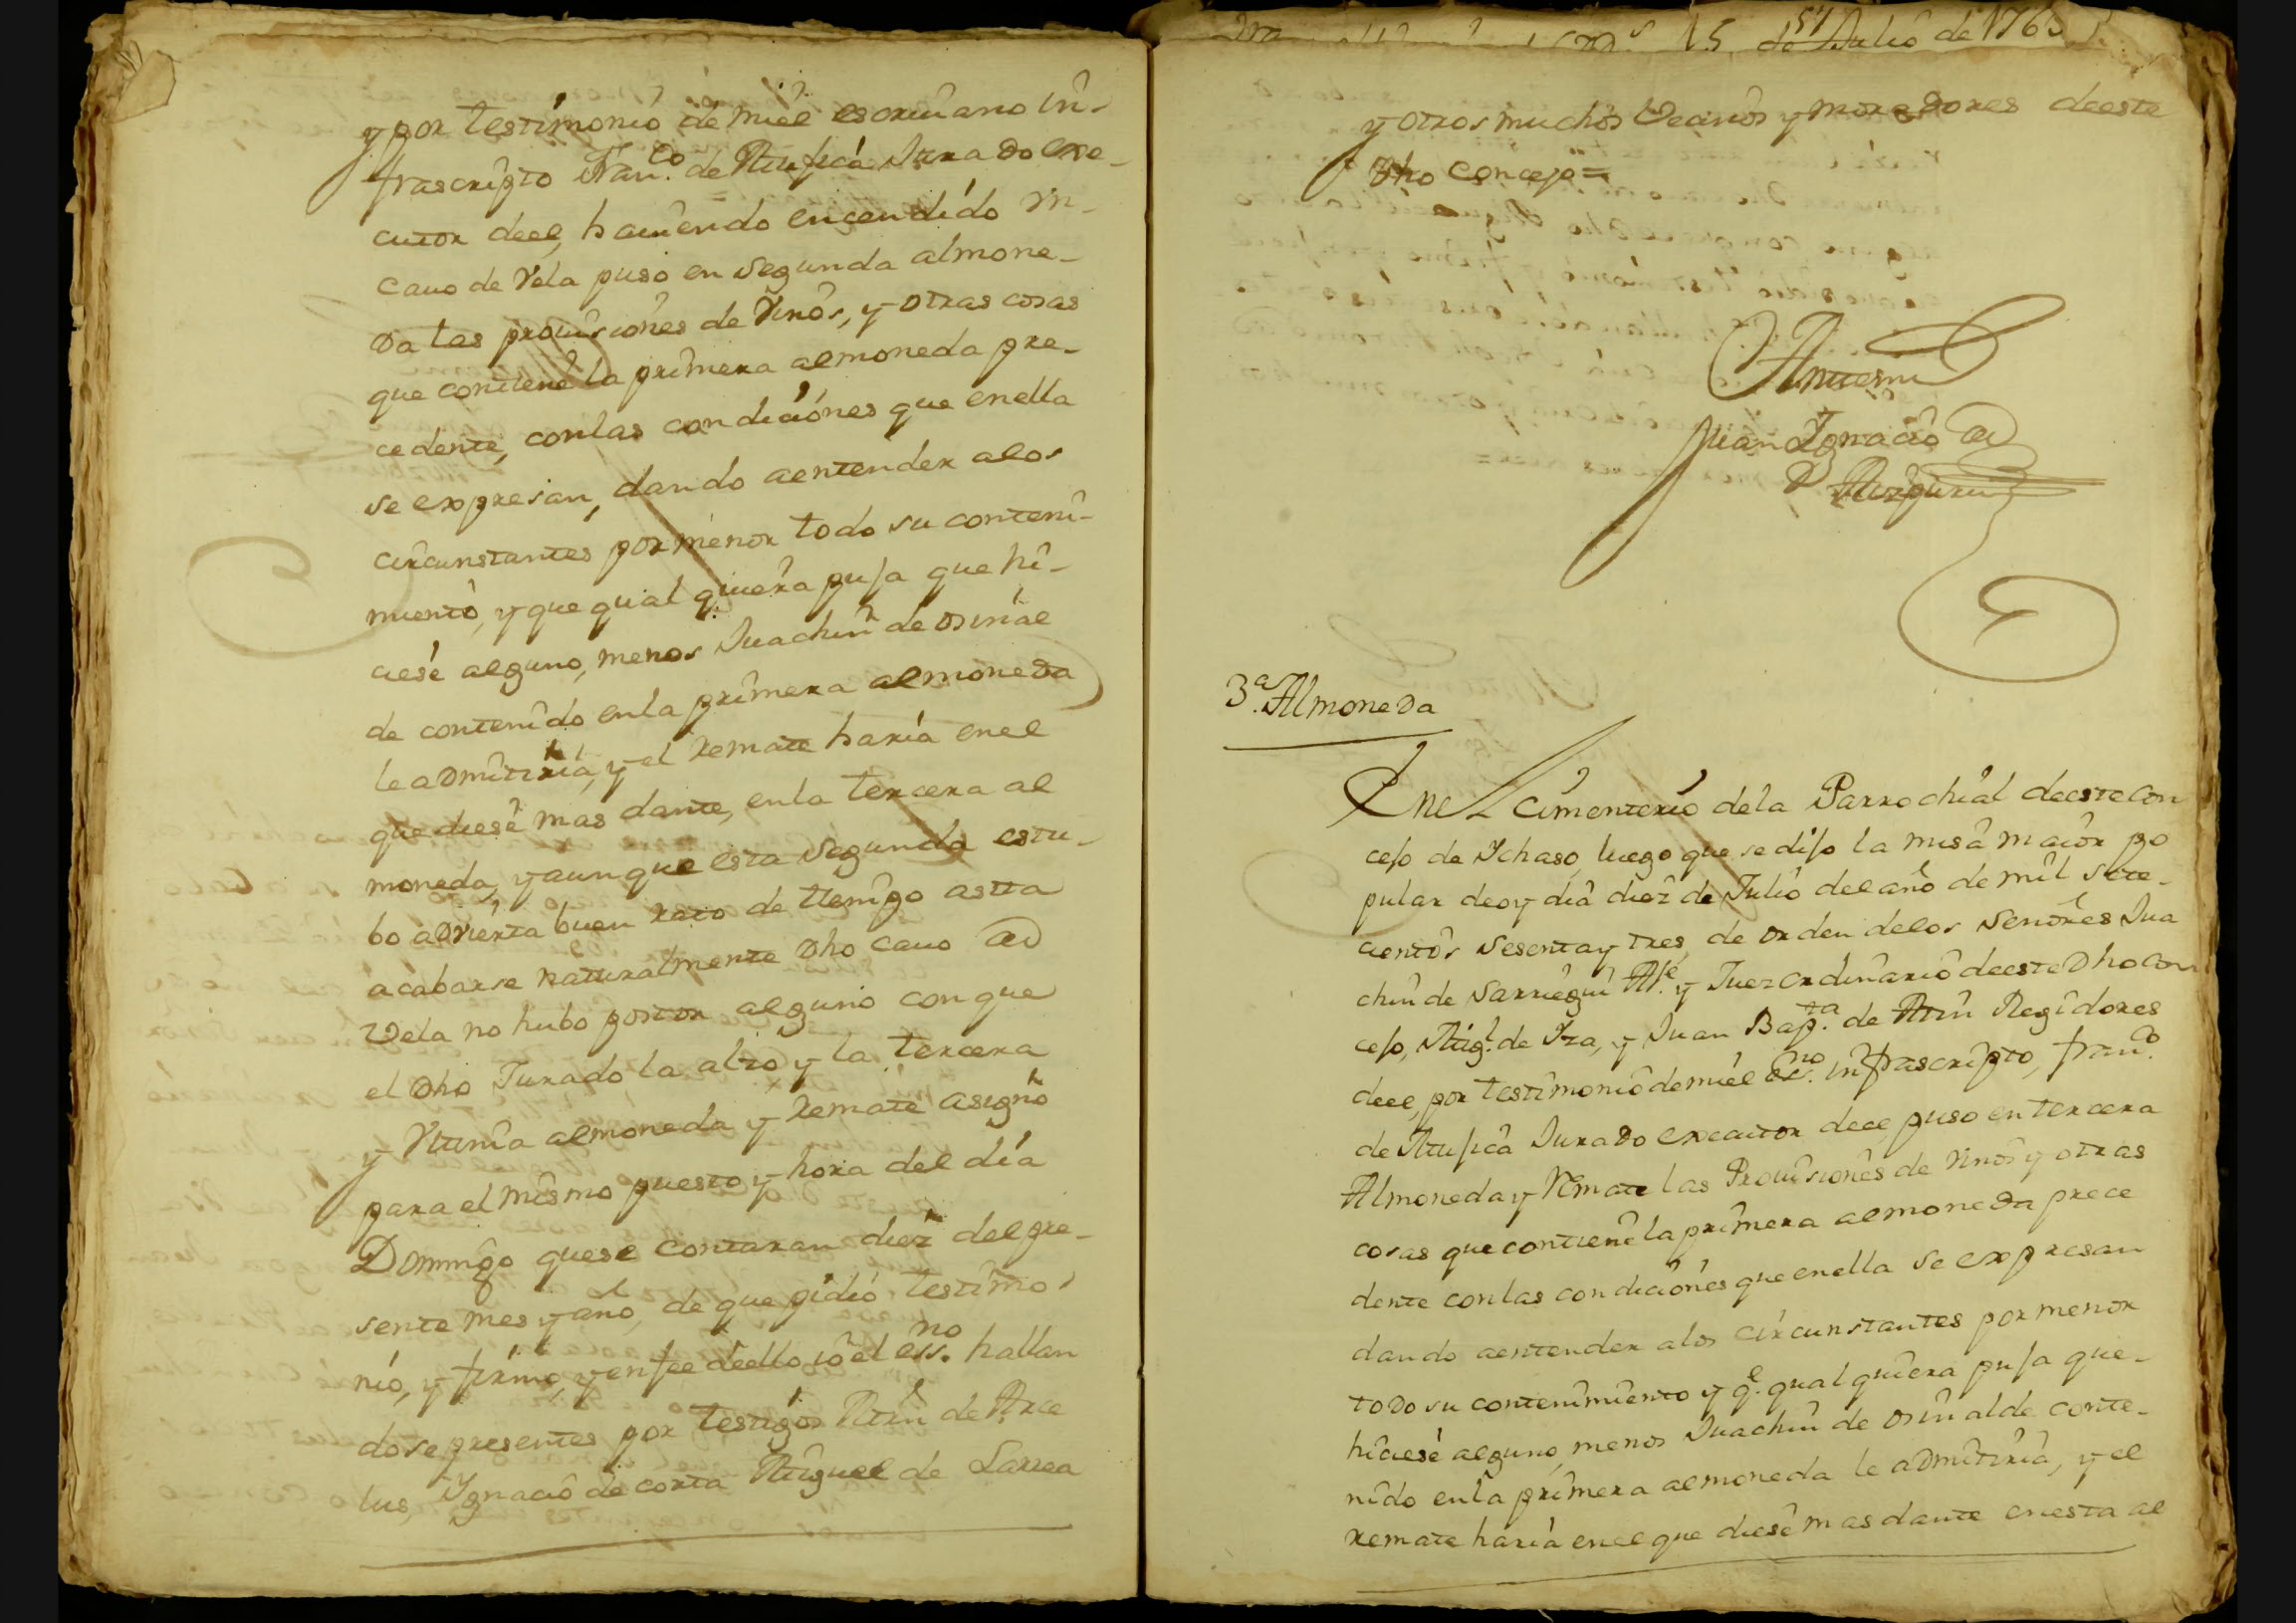 y por testimonio de mi el escriuano in-
frascripto Fran.co de Mufica Jurado exe-
cutor deel, hauiendo encendido vn
cauo de Vela puso en Segunda almone-
da las prouisiones de Vinos, y otras cosas
que contiene la primera almoneda pre-
cedente, con las condiciones que en ella
se expresan, dando aentender alos
circunstantes por menor todo su conteni-
miento, y que qual quiera puja que hi-
ciese alguno, menos Juachin de osinal
de contenido en la primera almoneda
le admitiria, y el remate haria en el
que diese mas dante, en la tercera al
moneda, y aunque esta Segunda estu-
bo advierta buen rato de tiempo asta
acabarse naturalmente dho cauo de
Vela no hubo postor alguno con que
el dho Jurado la alzo y la tercera
y Vltima almoneda y remate asigno
para el mismo puesto y hora del dia
Domingo que se contaran diez del pre-
sente mes y año, de que pidio testimo
nio, y firmo, y en fee deello io el ess.no hallan
dose presentes por testigos Mrn de Arce
lus, Ygnacio de corta Miguel de Larrea
15 de Julio de 1763
y otros muchos Vecinos y moradores deeste
dho concejo=
Antemi
Juan Ygnacio de
Aizpuru
3.a Almoneda
En el cimenterio dela Parrochial deeste con
cejo de Ychaso, luego que se dijo la misa maior po
pular de oy dia diez de Julio del año de mil sete-
cientos sesenta y tres, de orden delos Señores Jua
chin de Sarriegui Al.e y Juez ordinario deeste dho con
cejo, Mig.l de Yza, y Juan Bap.ta de Mrn Regidores
deel, por testimonio de mi el ess.no infrascripto, fran.co
de Mufica Jurado executor deel puso en tercera
Almoneda y Remate las Prouisiones de vinos y otras
cosas que contiene la primera almoneda prece
dente con las condiciones que en ella se expresan
dando aentender alos circunstantes por menor
todo su contenimiento y q.e qual quiera puja que
hiciese alguno, menos Juachin de osinalde conte-
nido en la primera almoneda le admitiria, y el
remate haria en el que diese mas dante en esta al